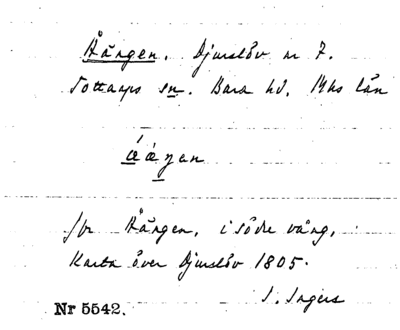 Åängen. Djurslöv nr 7.
Tottarps sn. Bara hd. Mhs län
fr Åängen, i södre vång,
Karta över Djurslöv 1805.
I. Ingers
Nr 5542.